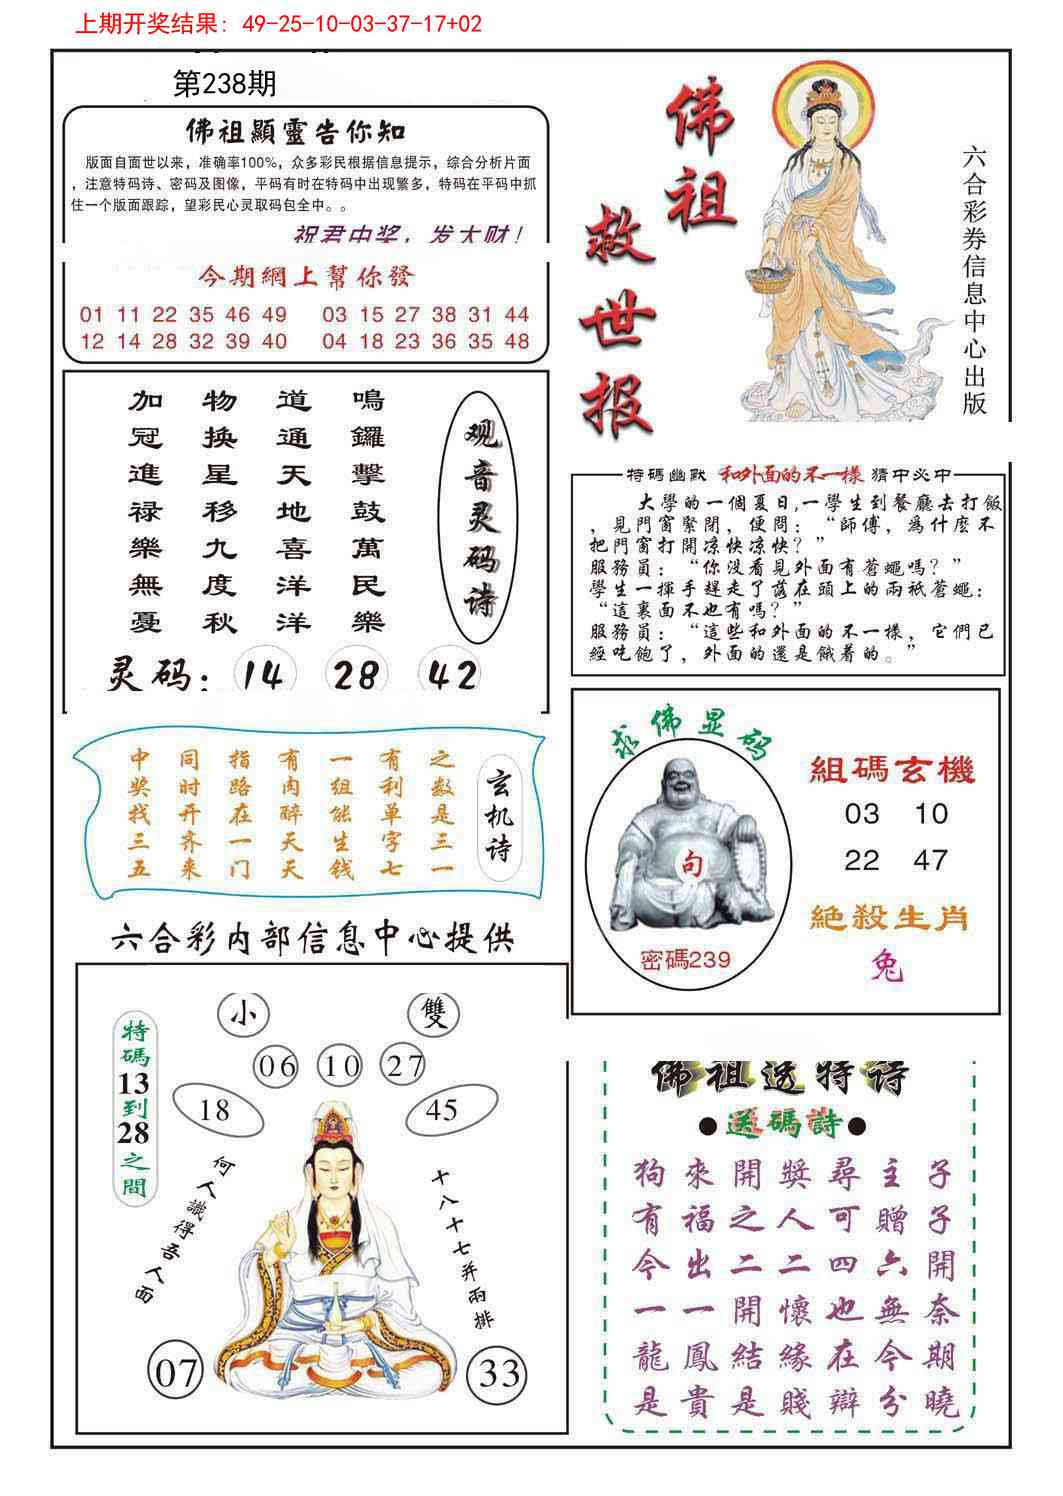 上期开奖结果: 49-25-10-03-37-17+02
第238期
佛祖顯靈告你知
版面自面世以来，准确率100%，众多彩民根据信息提示，综合分析片面
，注意特码诗、密码及图像，平码有时在特码中出现繁多，特码在平码中抓
住一个版面跟踪，望彩民心灵取码包全中。。
祝君中奖，发大财！
今期網上幫你發
01 11 22 35 46 49 03 15 27 38 31 44
12 14 28 32 39 40 04 18 23 36 35 48
佛祖
救世报
六合彩券信息中心出版
观音灵码诗
鳴鑼擊鼓萬民樂
道通天地喜洋洋
物换星移九度秋
加冠進禄樂無憂
灵码: 14 28 42
特碼幽默 和外面的不一樣 猜中必中
大學的一個夏日,一學生到餐廳去打飯
，見門窗緊閉，便問：“師傅，爲什麼不
把門窗打開凉快凉快？”
服務員：“你没看見外面有蒼蠅嗎？”
學生一揮手趕走了落在頭上的兩祇蒼蠅：
“這裏面不也有嗎？”
服務員：“這些和外面的不一樣，它們已
經吃飽了，外面的還是餓着的。”
玄机诗
之数是三一
有利单字七
一组能生钱
有肉醉天天
指路在一门
同时开齐来
中奖找三五
求佛显码
句
密碼239
組碼玄機
03 10
22 47
絶殺生肖
兔
六合彩内部信息中心提供
特碼13到28之間
小 雙
06 10 27
18 45
何人識得吾人面
十八十七并兩排
07 33
佛祖送特诗
●送碼詩●
狗來開獎尋主子
有福之人可贈子
今出二二四六開
一一開懷也無奈
龍鳳結緣在今期
是貴是賤辯分曉